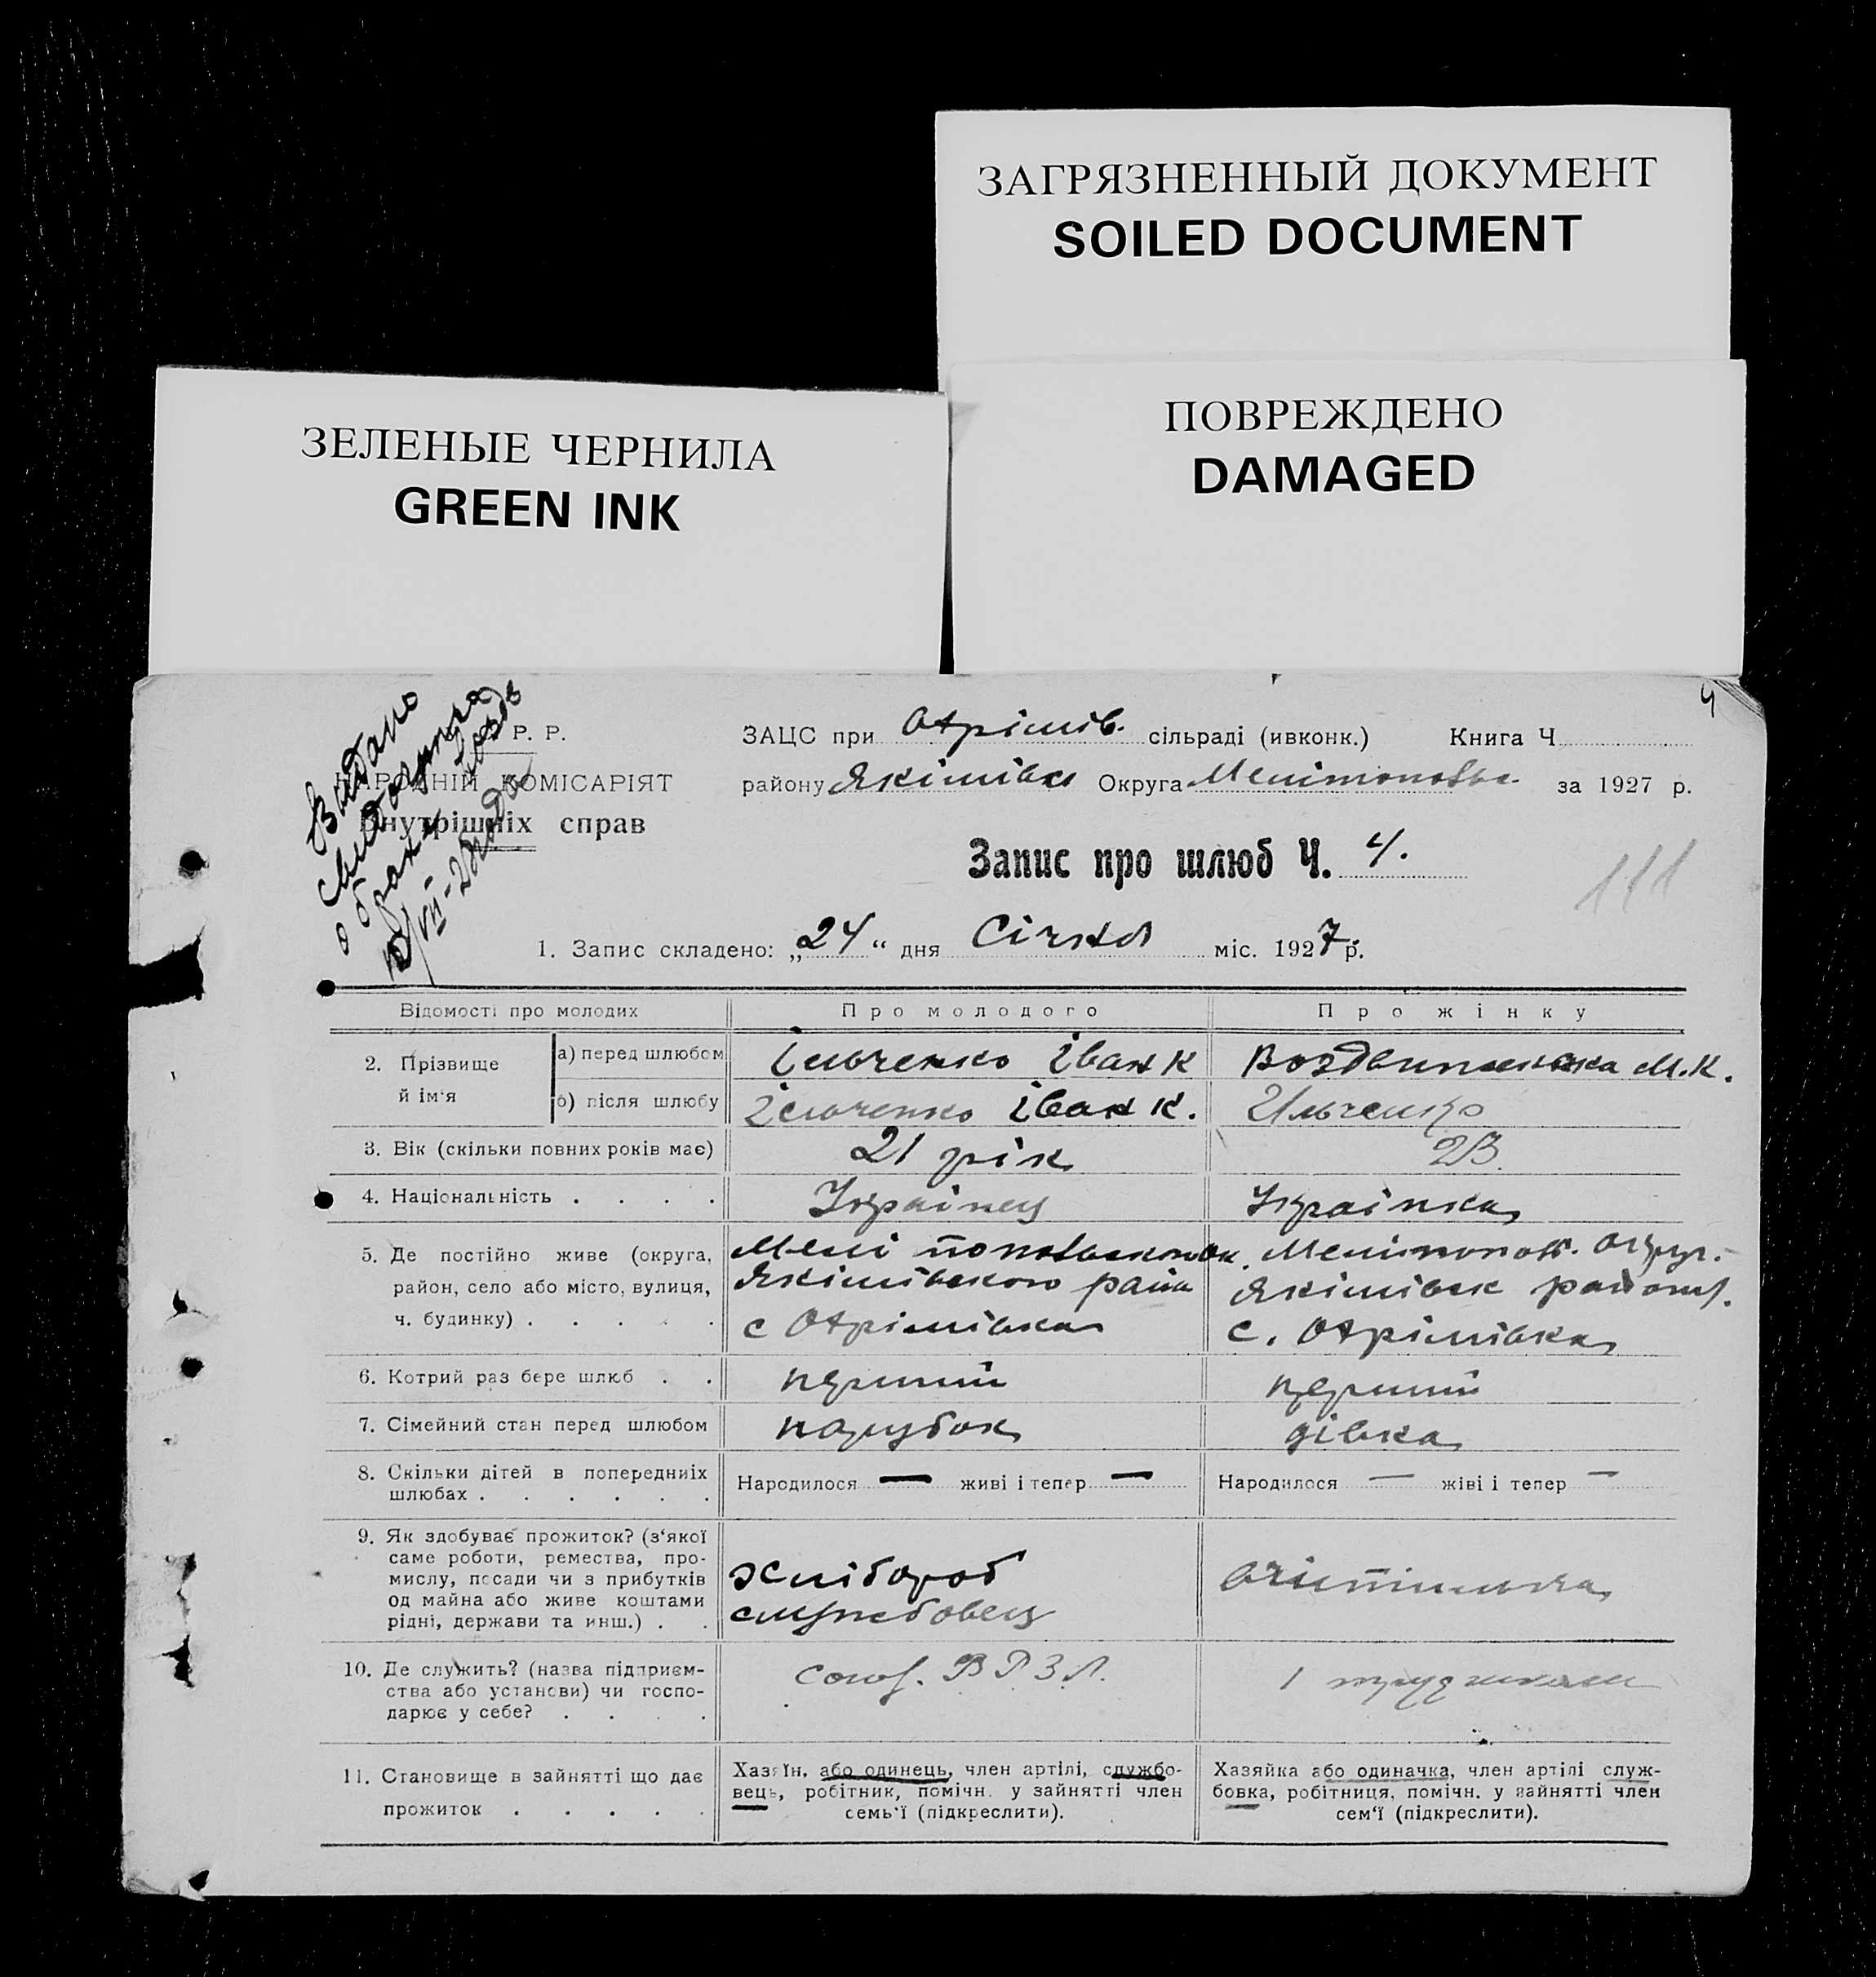 ЗАГРЯЗНЕННЫЙ ДОКУМЕНТ
SOILED DOCUMENT
ЗЕЛЕНЫЕ ЧЕРНИЛА
GREEN INK
ПОВРЕЖДЕНО
DAMAGED
4
Видано
о браке
Р. Р.
НАРОДНІЙ КОМІСАРІЯТ
Внутрішніх справ
ЗАЦС при Отрімів. сільраді (ивконк.) Книга Ч
району Якімівськ Округа Мелітопольськ за 1927 р.
Запис про шлюб Ч. 4.
111
1. Запис складено: „24“ дня Січня міс. 1927 р.
Відомості про молодих
Про молодого
Про жінку
2. Прізвище й ім‘я
а) перед шлюбом
Ільченко Іван К
Воздвиженська М. К.
б) після шлюбу
Ільченко Іван К.
Ильченко
3. Вік (скільки повних років має)
21 рік
23
4. Національність . . . .
Українец
Українка
5. Де постійно живе (округа,
район, село або місто, вулиця,
ч. будинку) . . . . .
Якімівського район
с Отрімівка
Мелітопол. округ.
Якімівськ району.
с. Отрімівка
6. Котрий раз бере шлюб . .
перший
перший
7. Сімейний стан перед шлюбом
парубок
дівка
8. Скільки дітей в попередниіх
шлюбах . . . . . .
Народилося — живі і тепер —
Народилося — жіві і тепер —
9. Як здобуває прожиток? (з‘якої
саме роботи, ремества, про-
мислу, посади чи з прибутків
од майна або живе коштами
рідні, держави та инш.) . .
хлібороб
службовец
учітілька
10. Де служить? (назва підприєм-
ства або установи) чи госпо-
дарює у себе? . . . .
1
11. Становище в зайнятті що дає
прожиток . . . . .
Хазяїн, або одинець, член артілі, службо-
вець, робітник, помічн. у зайнятті член
семь‘ї (підкреслити).
Хазяйка або одиначка, член артілі служ-
бовка, робітниця, помічн. у зайнятті член
сем‘ї (підкреслити).